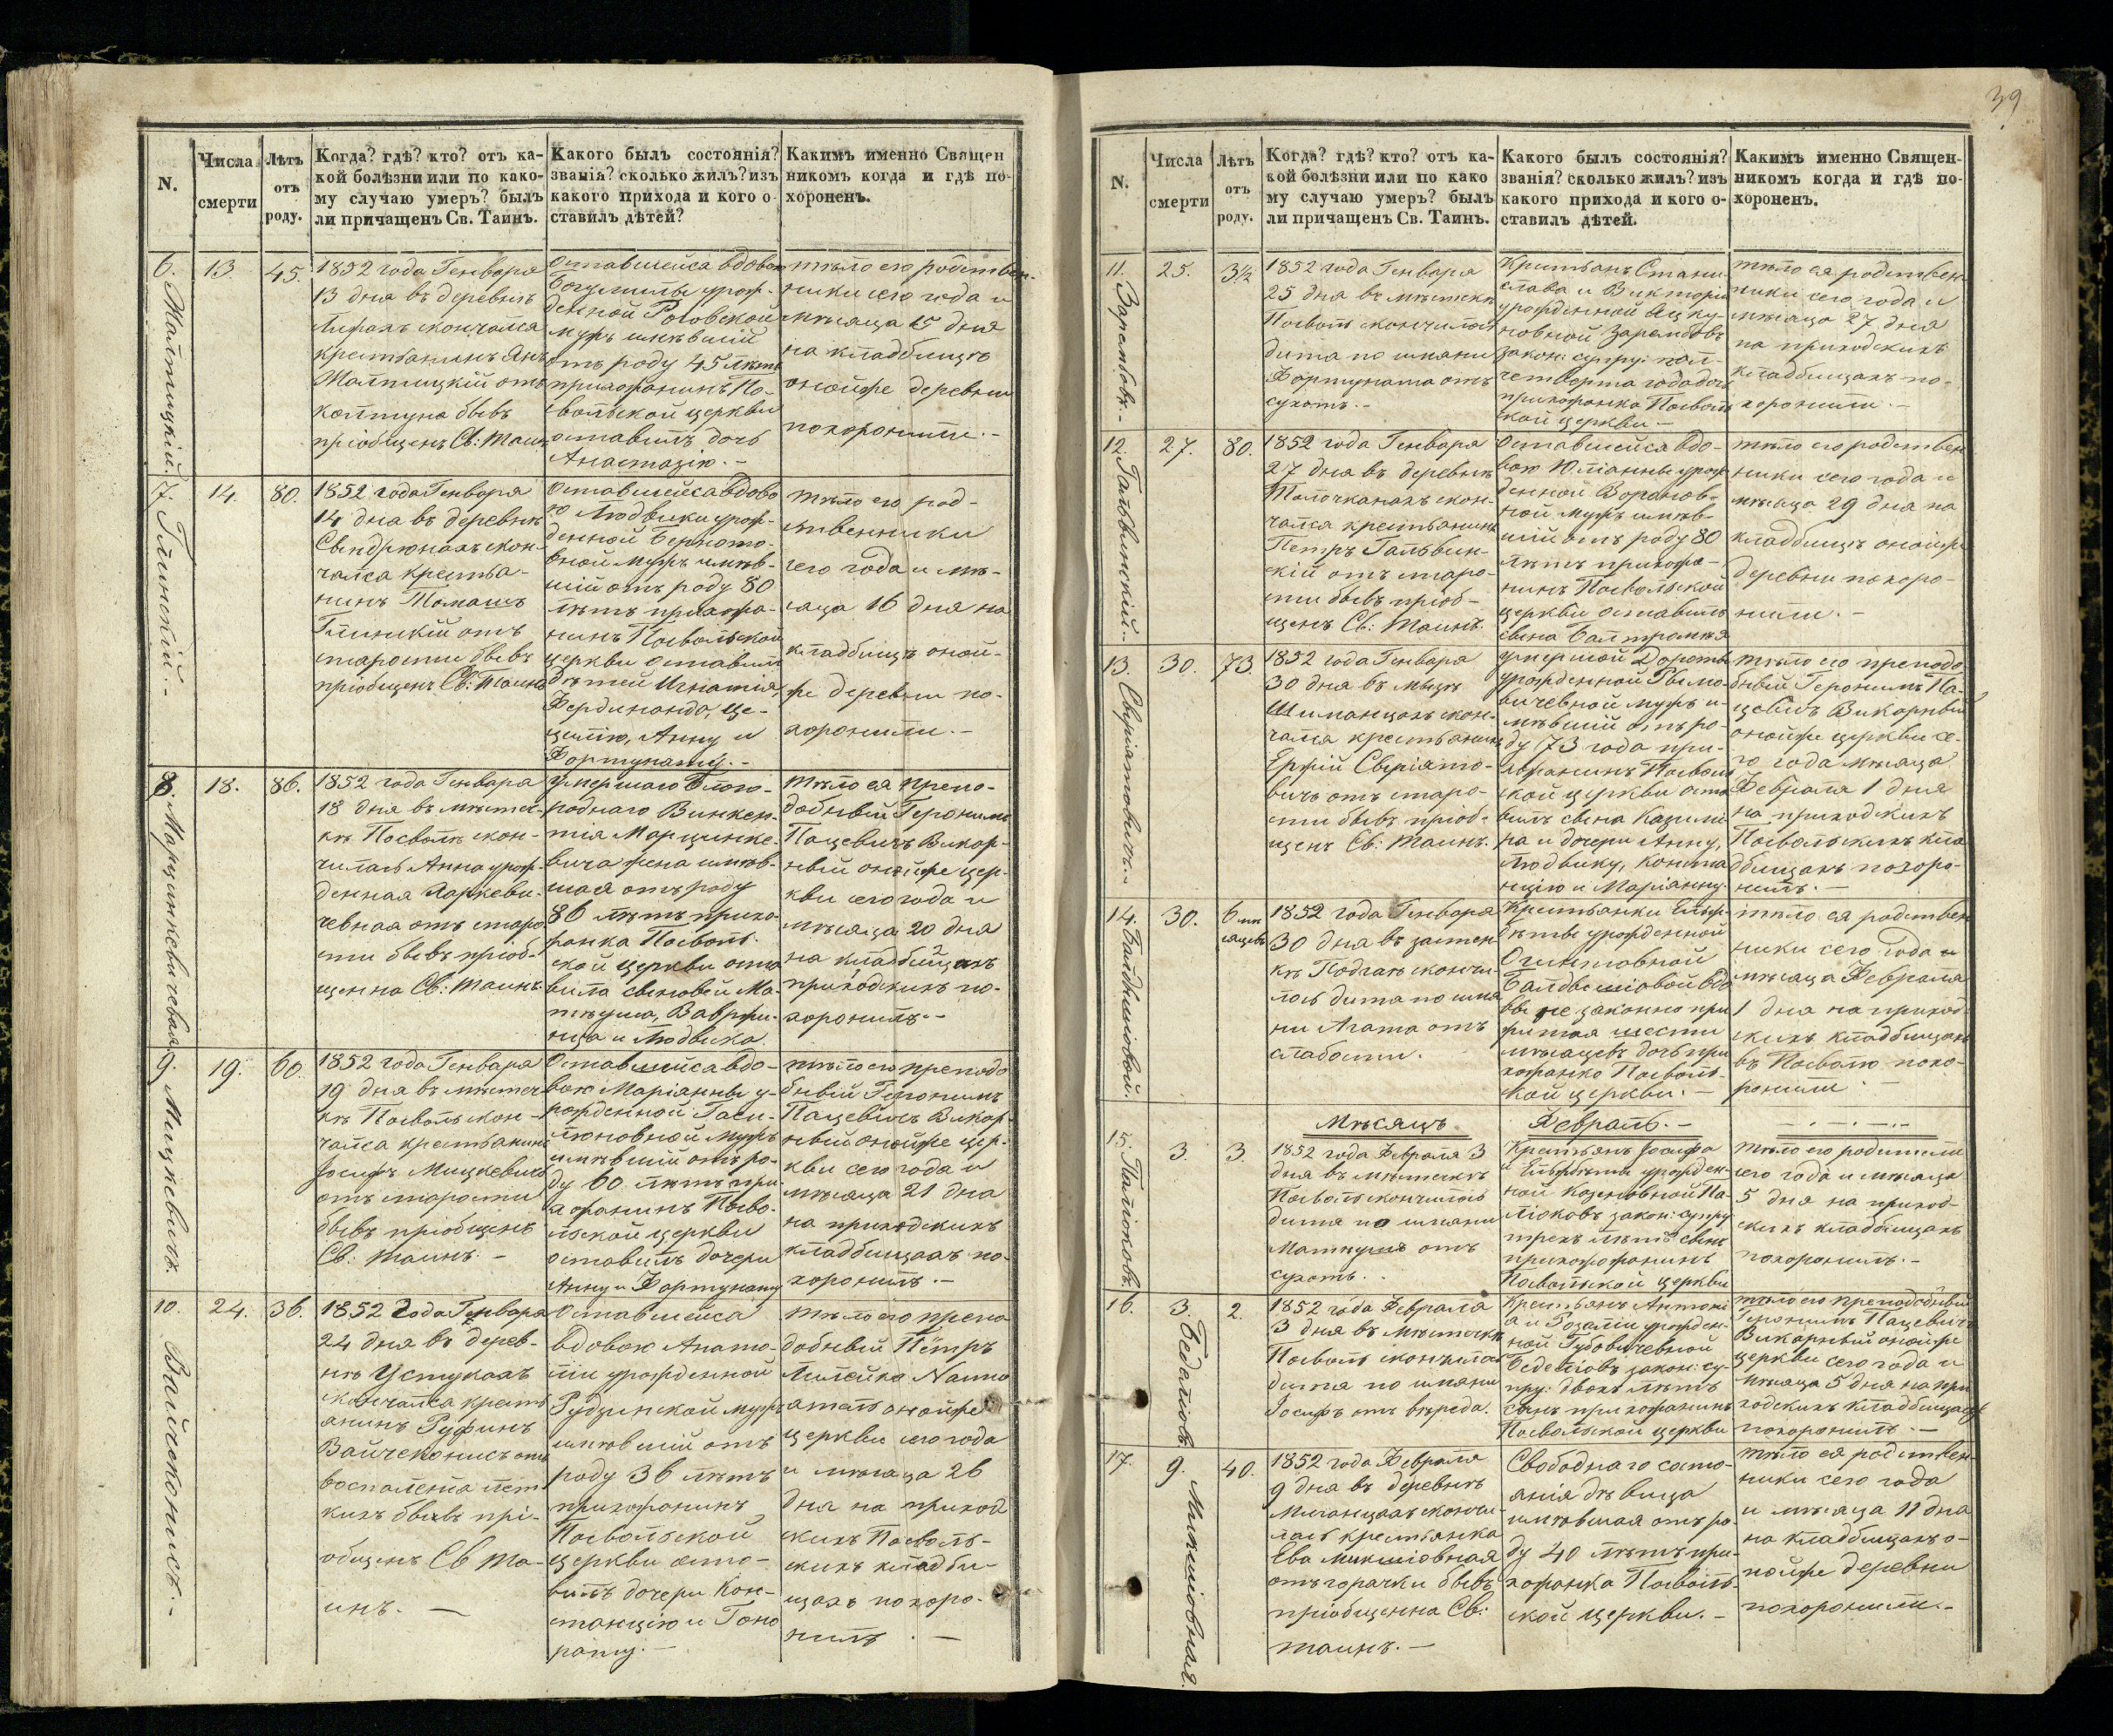 39
N.
Числа
смерти
Лѣтъ
отъ
роду.
Когда? гдѣ? кто? отъ ка-
кой болѣзни или по како-
му случаю умеръ? былъ
ли причащенъ Св. Таинъ.
Какого былъ состоянія?
званія? сколько жилъ? изъ
какого прихода и кого о-
ставилъ дѣтей?
Какимъ именно Священ
никомъ когда и гдѣ по-
хороненъ.
6.
13.
45.
1852 года Генваря
13 дня въ деревнѣ
скончался
крестьянинъ Янъ
отъ
колтуна бывъ
пріобщенъ Св: Таинъ
Оставшейся вдовою
урож-
денной Роговской
мужъ имѣвшій
отъ роду 45 лѣтъ
прихожанинъ По-
свольской церкви
оставилъ дочь
Анастазію. -
тѣло его родствен-
ники сего года и
мѣсяца 15 дня
на кладбищѣ
онойже деревни
похоронили. -
7. Глинскій. -
14.
80.
1852 года Генваря
14 дня въ деревнѣ
Свендрюнахъ скон-
чался крестья-
нинъ Томашъ
Глинскій отъ
старости бывъ
пріобщенъ Св: Таинъ
Оставшейся вдово
ю Людвики урож-
денной
вной мужъ имѣв-
шій отъ роду 80
лѣтъ прихожа-
нинъ Посвольской
церкви оставилъ
дѣтей Игнатія,
Фердинанда, Це-
цилію, Анну и
Фортунату. -
тѣло его род-
ственники
сего года и мѣ-
сяца 16 дня на
кладбищѣ оной-
же деревни по-
хоронили. -
8. Марцинкевичевая
18.
86.
1852 года Генваря
18 дня въ мѣстеч-
кѣ Посволѣ скон-
чилась Анна урож-
денная Яцкеви-
чевная отъ старо
сти бывъ пріоб-
щенна Св: Таинъ.
Умершаго Благо-
роднаго Винкен-
тія Марцинке-
вича жена имѣв-
шая отъ роду
86 лѣтъ прихо-
жанка Посволь-
ской церкви оста
вила сыновей Ма-
тѣуша, Вавржи-
нца и Людвика.
тѣло ея препо-
добный Геронимъ
Пацевичъ Викар-
ный онойже цер-
кви сего года и
мѣсяца 20 дня
на кладбищахъ
приходскихъ по-
хоронилъ. -
9. Мицкевичъ.
19.
60.
1852 года Генваря
19 дня въ мѣстеч
кѣ Посволѣ скон-
чался крестьянинъ
Іосифъ Мицкевичъ
отъ старости
бывъ пріобщенъ
Св: Таинъ. -
Оставшейся вдо-
вою Маріанны у-
рожденной Гаси-
люновной мужъ
имѣвшій отъ ро-
ду 60 лѣтъ при-
хожанинъ Посво-
льской церкви
оставилъ дочери
Анну и Фортунату
тѣло его преподо
бный Геронимъ
Пацевичъ Викар-
ный онойже цер-
кви сего года и
мѣсяца 21 дня
на приходскихъ
кладбищахъ по-
хоронилъ. -
10. Вайчеконисъ. -
24.
36.
1852 года Генваря
24 дня въ дерев-
нѣ Устукахъ
скончался кресть
янинъ Руфинъ
Вайчеконисъ отъ
воспаленія лег-
кихъ бывъ прі-
общенъ Св Та-
инъ. -
Оставшейся
вдовою Анато-
ліи урожденной
Рудзинской мужъ
имѣвшій отъ
роду 36 лѣтъ
прихожанинъ
Посвольской
церкви оста-
вилъ дочери Кон-
станцію и Гоно
рату. -
тѣло его препо
добный Пётръ
Лилейко
онойже
церкви сего года
и мѣсяца 26
дня на приход
скихъ Посволь-
скихъ кладби-
щахъ похоро-
нилъ. -
N.
Числа
смерти
Лѣтъ
отъ
роду.
Когда? гдѣ? кто? отъ ка-
кой болѣзни или по како
му случаю умеръ? былъ
ли причащенъ Св. Таинъ.
Какого былъ состоянія?
званія? сколько жилъ? изъ
какого прихода и кого о-
ставилъ дѣтей.
Какимъ именно Священ-
никомъ когда и гдѣ по-
хороненъ.
11. Зарембовъ. -
25.
3½
1852 года Генваря
25 дня въ мѣстечкѣ
Посволѣ скончилось
дитя по имяни
Фортуната отъ
сухотъ. -
Крестьянъ Стани-
слава и Викторіи
урожденной Яцку-
новной Зарембовъ
закон: супру: пол-
четверта года дочь
прихожанка Посволь
ской церкви -
тѣло ея родствен
ники сего года и
мѣсяца 27 дня
на приходскихъ
кладбищахъ по-
хоронили. -
12. Гальвинскій. -
27.
80.
1852 года Генваря
27 дня въ деревнѣ
Толочканахъ скон-
чался крестьянинъ
Петръ Гальвин-
скій отъ старо-
сти бывъ пріоб-
щенъ Св: Таинъ.
Оставшейся вдо-
вою Юліанны урож
денной Воронов-
ной мужъ имѣв-
шій отъ роду 80
лѣтъ прихожа-
нинъ Посвольской
церкви оставилъ
сына Балтромѣя
тѣло его родствен
ники сего года и
мѣсяца 29 дня на
кладбищѣ онойже
деревни похоро-
нили. -
13.
30.
73.
1852 года Генваря
30 дня въ мызѣ
Шиманцахъ скон-
чался крестьянинъ
Ержій
вичъ отъ старо-
сти бывъ пріоб-
щенъ Св: Таинъ.
умершой Дороты
урожденной
вичевной мужъ и-
мѣвшій отъ ро-
ду 73 года при-
хожанинъ Посволь
ской церкви оста
вилъ сына Казими
ра и дочери Анну,
Людвику, Конста
нцію и Маріанну.
тѣло его преподо
бный Геронимъ Па-
цевичъ Викарный
онойже церкви се-
го года мѣсяца
Февраля 1 дня
на приходскихъ
Посвольскихъ кла
дбищахъ похоро-
нилъ. -
14.
30.
6 мѣ
сяцевъ
1852 года Генваря
30 дня въ застен-
кѣ скончи-
лось дитя по имя
ни Агата отъ
слабости.
Крестьянки Ельж-
бѣты урожденной
вдо
вы не законно при
житая шести
мѣсяцевъ дочь при
хожанка Посволь-
ской церкви. -
тѣло ея родствен
ники сего года и
мѣсяца Февраля
1 дня на приход-
скихъ кладбищахъ
въ Посволю похо-
ронили -
Мѣсяцъ Февраль. -
15. Палюковъ.
3.
3
1852 года Февраля 3
дня въ мѣстечкѣ
Посволѣ скончилось
дитя по имяни
Матѣушъ отъ
сухотъ. -
Крестьянъ Іосифа
и Ельжбѣты урожден-
ной Козеновной Па-
люковъ закон: супру
трехъ лѣтъ сынъ
прихожанинъ
Посвольской церкви
тѣло его родители
сего года и мѣсяца
5 дня на приход-
скихъ кладбищахъ
похоронилъ. -
16. Бедаліовъ
3.
2.
1852 года Февраля
3 дня въ мѣстечкѣ
Посволѣ скончилось
дитя по имяни
Іосифъ отъ вереда.
Крестьянъ Антоні
я и Розаліи урожден-
ной Губовичевной
Бедаліовъ закон: су-
пру: двохъ лѣтъ
сынъ прихожанинъ
Посвольской церкви
тѣло его преподобный
Геронимъ Пацевичъ
Викарный онойже
церкви сего года и
мѣсяца 5 дня на при
ходскихъ кладбищахъ
похоронилъ. -
17. Микшіовная.
9.
40.
1852 года Февраля
9 дня въ деревнѣ
скончи-
лась крестьянка
Ева Микшіовная
отъ горячки бывъ
пріобщенна Св:
таинъ. -
Свободнаго состо-
янія дѣвица
имѣвшая отъ ро-
ду 40 лѣтъ при-
хожанка Посволь-
ской церкви. -
тѣло ея родствен-
ники сего года
и мѣсяца 11 дня
на кладбищахъ о-
нойже деревни
похоронили. -